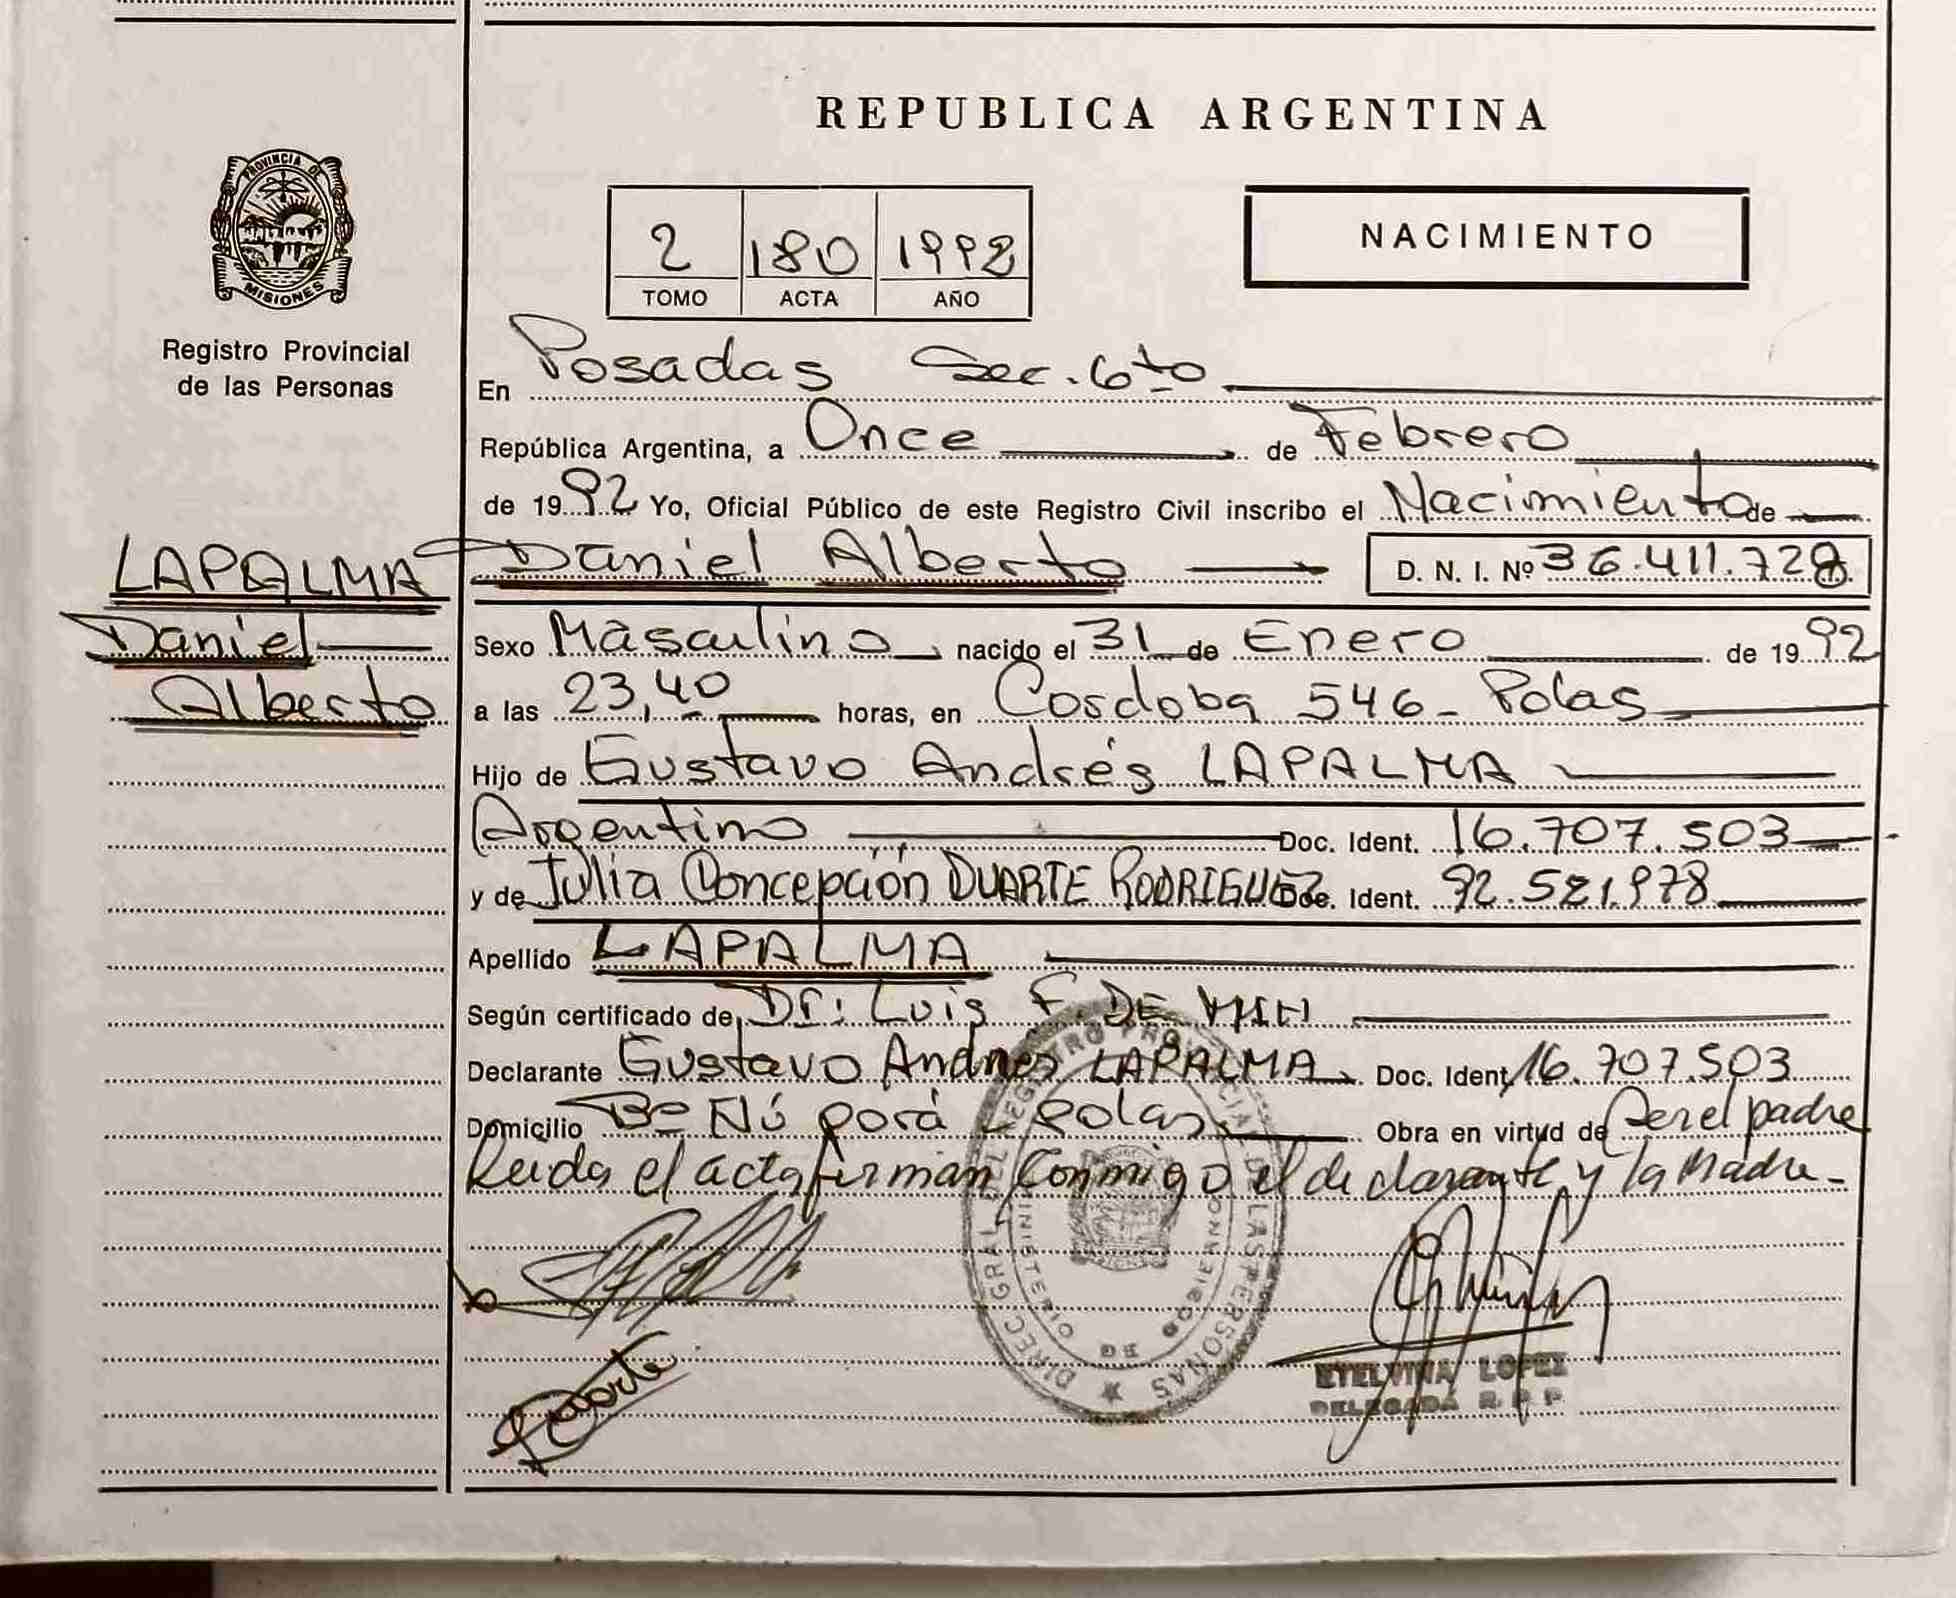 REPUBLICA ARGENTINA
PROVINCIA DE
MISIONES
Registro Provincial
de las Personas
2 180 1992
TOMO ACTA AÑO
NACIMIENTO
En Posadas Sec. 6to
República Argentina, a Once de Febrero
de 1992 Yo, Oficial Público de este Registro Civil inscribo el Nacimiento de
LAPALMA
Daniel
Alberto
Daniel Alberto D. N. I. Nº 36.411.728
Sexo Masculino nacido el 31 de Enero de 1992
a las 23,40 horas, en Cordoba 546 - Polas
Hijo de Gustavo Andrés LAPALMA
Argentino Doc. Ident. 16.707.503
y de Julia Concepción DUARTE RODRIGUEZ Doc. Ident. 92.521.978
Apellido LAPALMA
Según certificado de Dr: Luis F. DE
Declarante Gustavo Andres LAPALMA Doc. Ident. 16.707.503
Domicilio Bº Ñú porá Polas Obra en virtud de ser el padre
Leida el acta firman conmigo el declarante y la Madre -
DIREC. GRAL. DEL REGISTRO PROVINCIAL DE LAS PERSONAS
MINISTERIO DE GOBIERNO
Duarte
ETELVINA LOPEZ
DELEGADA R. P. P.